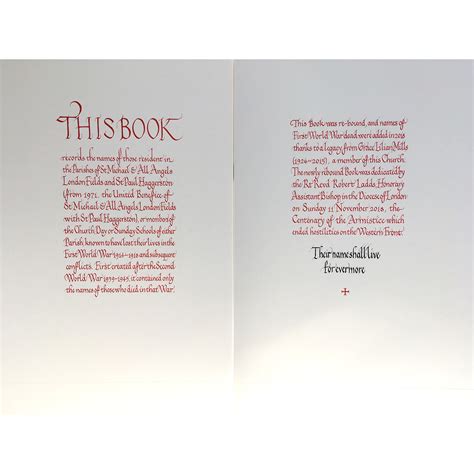 THIS BOOK
records the names of those resident in
the Parishes of St Michael & All Angels
London Fields and St Paul Haggerston
(from 1971, the United Benefice of
St Michael & All Angels London Fields
with St Paul Haggerston), or members of
the Church Day or Sunday Schools of either
Parish, known to have lost their lives in the
First World War 1914-1918 and subsequent
conflicts. First created after the Second
World War 1939-1945, it contained only
the names of those who died in that War.
This Book was re-bound, and names of
First World War dead were added in 2018
thanks to a legacy from Grace Lilian Mills
(1926-2015), a member of this Church.
The newly rebound Book was dedicated by
the Rt Revd Robert Ladds, Honorary
Assistant Bishop in the Diocese of London
on Sunday 11 November 2018, the
Centenary of the Armistice which
ended hostilities on the Western Front.
Their name shall live
for evermore